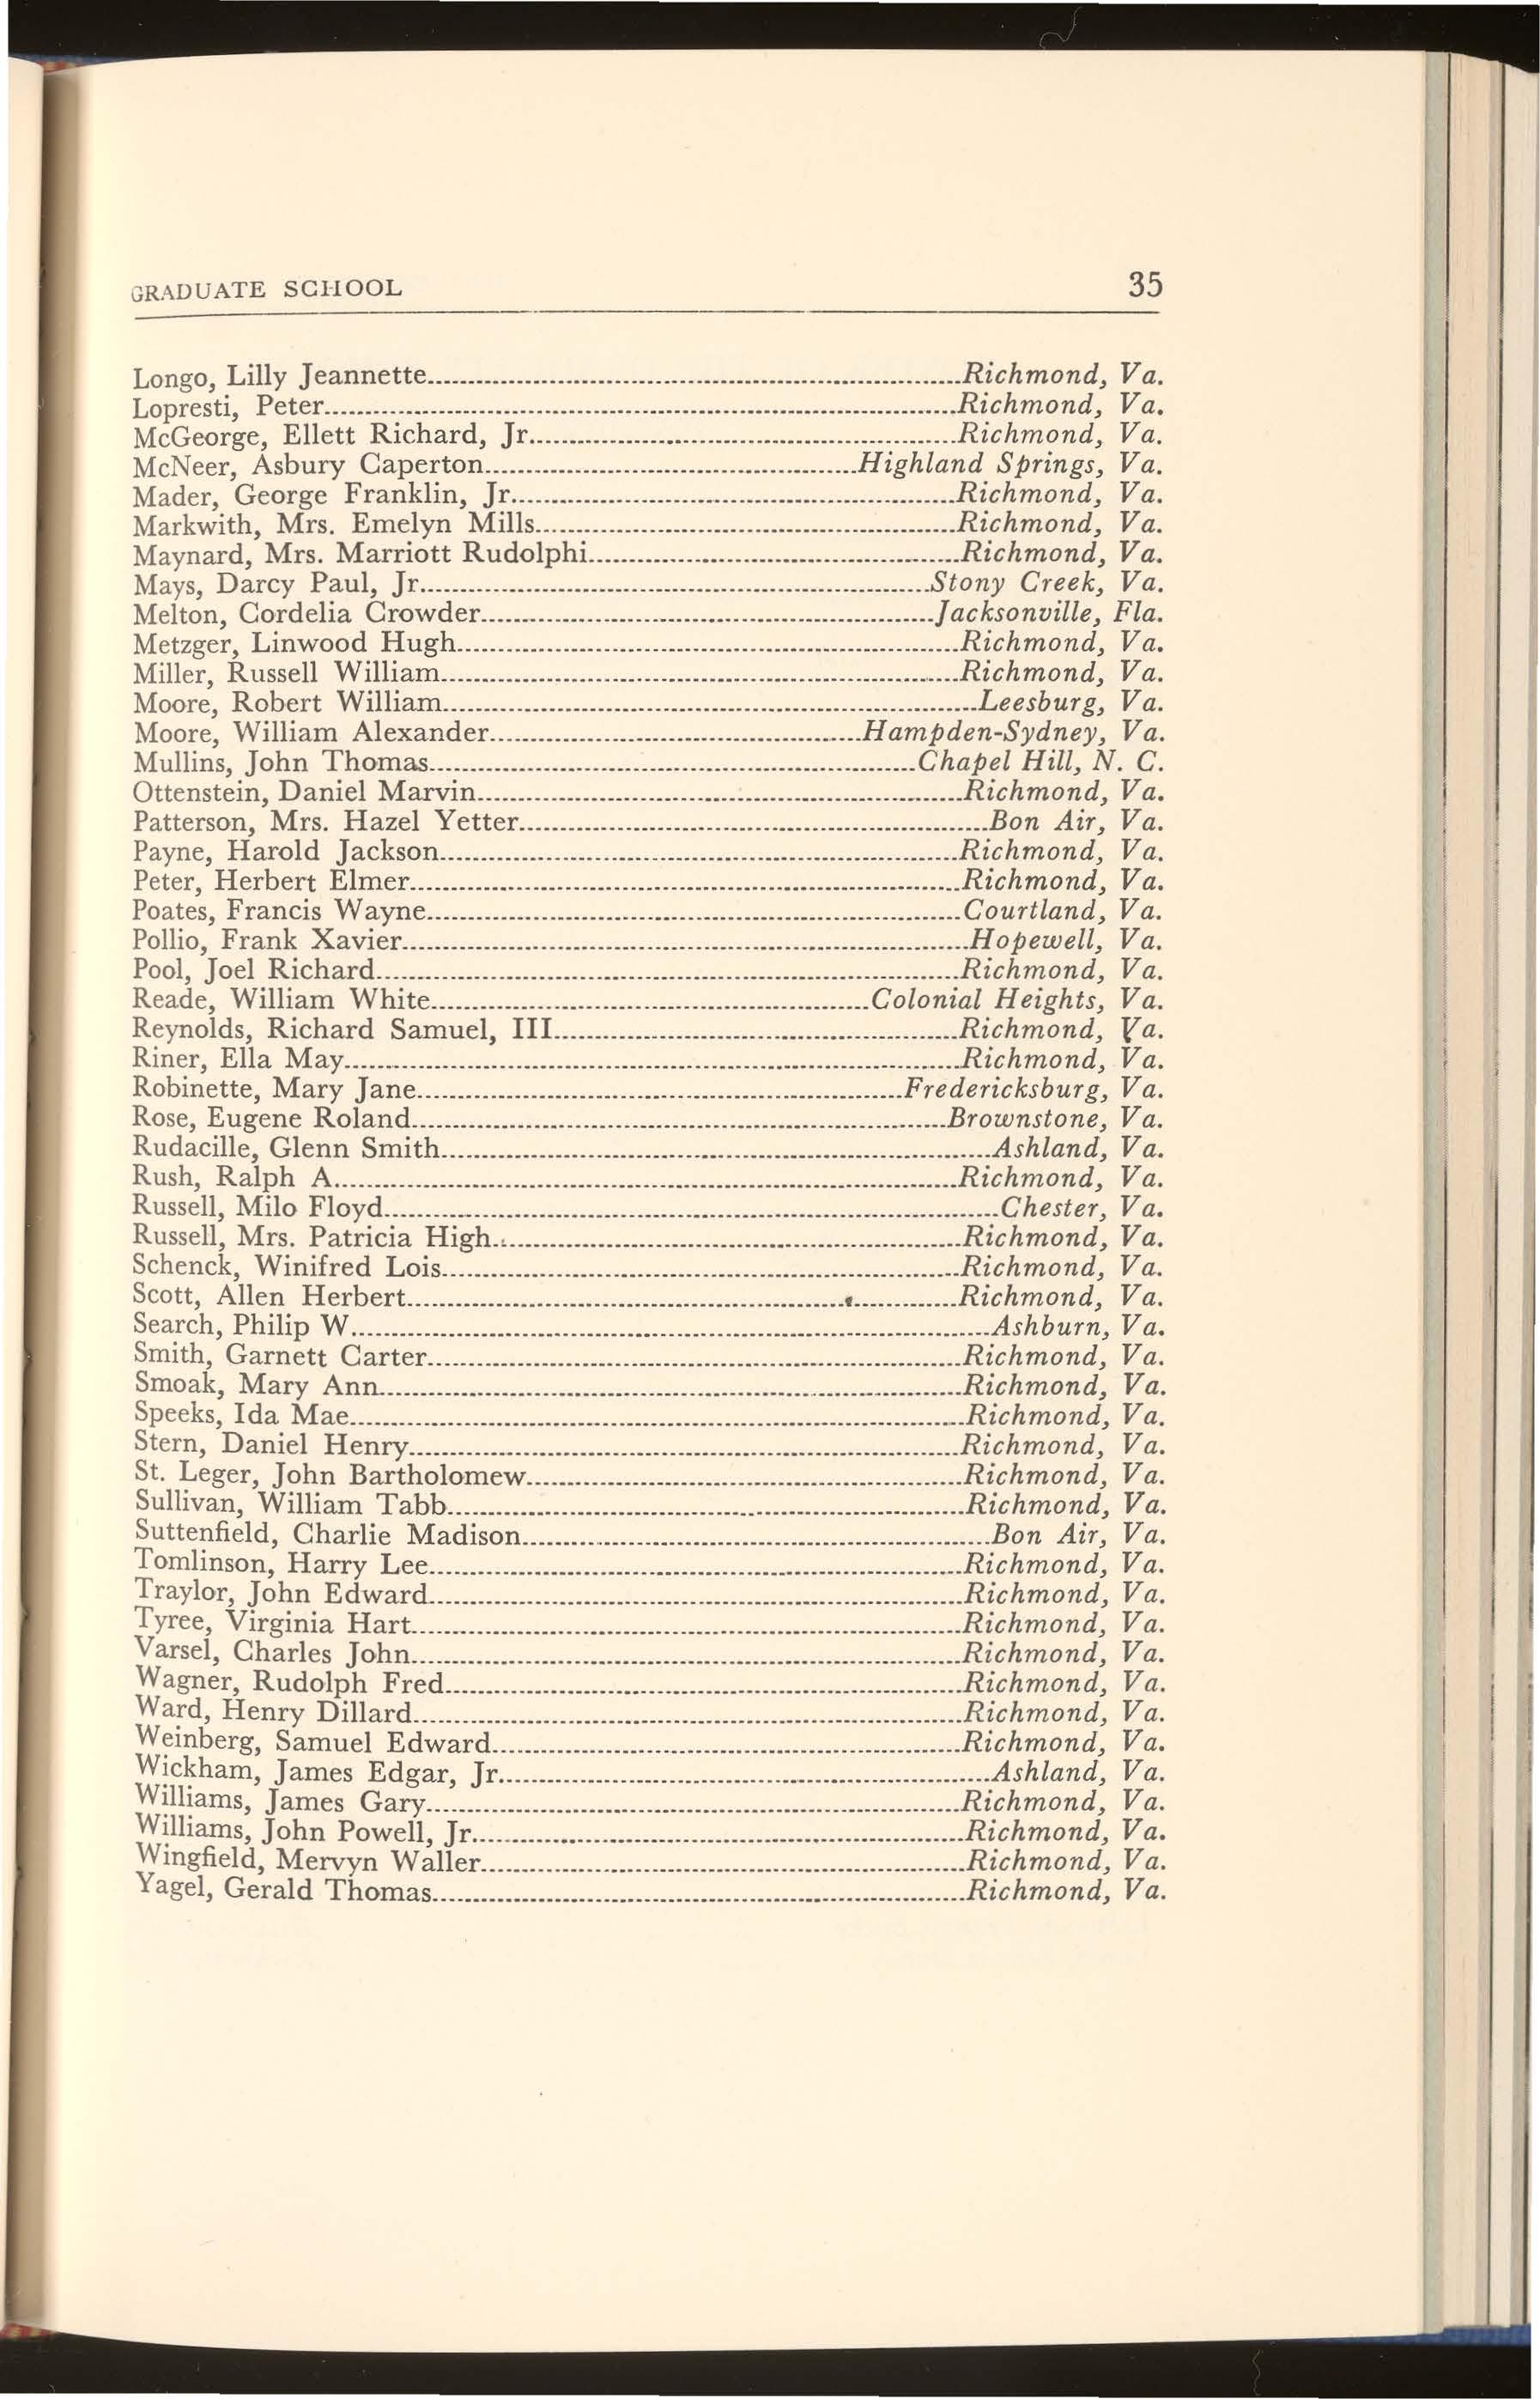 GRADUATE SCHOOL 35
Longo, Lilly Jeannette........Richmond, Va.
Lopresti, Peter........Richmond, Va.
McGeorge, Ellett Richard, Jr.........Richmond, Va.
McNeer, Asbury Caperton........Highland Springs, Va.
Mader, George Franklin, Jr.........Richmond, Va.
Markwith, Mrs. Emelyn Mills........Richmond, Va.
Maynard, Mrs. Marriott Rudolphi........Richmond, Va.
Mays, Darcy Paul, Jr.........Stony Creek, Va.
Melton, Cordelia Crowder........Jacksonville, Fla.
Metzger, Linwood Hugh........Richmond, Va.
Miller, Russell William........Richmond, Va.
Moore, Robert William........Leesburg, Va.
Moore, William Alexander........Hampden-Sydney, Va.
Mullins, John Thomas........Chapel Hill, N. C.
Ottenstein, Daniel Marvin........Richmond, Va.
Patterson, Mrs. Hazel Yetter........Bon Air, Va.
Payne, Harold Jackson........Richmond, Va.
Peter, Herbert Elmer........Richmond, Va.
Poates, Francis Wayne........Courtland, Va.
Pollio, Frank Xavier........Hopewell, Va.
Pool, Joel Richard........Richmond, Va.
Reade, William White........Colonial Heights, Va.
Reynolds, Richard Samuel, III........Richmond, Va.
Riner, Ella May........Richmond, Va.
Robinette, Mary Jane........Fredericksburg, Va.
Rose, Eugene Roland........Brownstone, Va.
Rudacille, Glenn Smith........Ashland, Va.
Rush, Ralph A.........Richmond, Va.
Russell, Milo Floyd........Chester, Va.
Russell, Mrs. Patricia High........Richmond, Va.
Schenck, Winifred Lois........Richmond, Va.
Scott, Allen Herbert........Richmond, Va.
Search, Philip W.........Ashburn, Va.
Smith, Garnett Carter........Richmond, Va.
Smoak, Mary Ann........Richmond, Va.
Speeks, Ida Mae........Richmond, Va.
Stern, Daniel Henry........Richmond, Va.
St. Leger, John Bartholomew........Richmond, Va.
Sullivan, William Tabb........Richmond, Va.
Suttenfield, Charlie Madison........Bon Air, Va.
Tomlinson, Harry Lee........Richmond, Va.
Traylor, John Edward........Richmond, Va.
Tyree, Virginia Hart........Richmond, Va.
Varsel, Charles John........Richmond, Va.
Wagner, Rudolph Fred........Richmond, Va.
Ward, Henry Dillard........Richmond, Va.
Weinberg, Samuel Edward........Richmond, Va.
Wickham, James Edgar, Jr.........Ashland, Va.
Williams, James Gary........Richmond, Va.
Williams, John Powell, Jr.........Richmond, Va.
Wingfield, Mervyn Waller........Richmond, Va.
Yagel, Gerald Thomas........Richmond, Va.